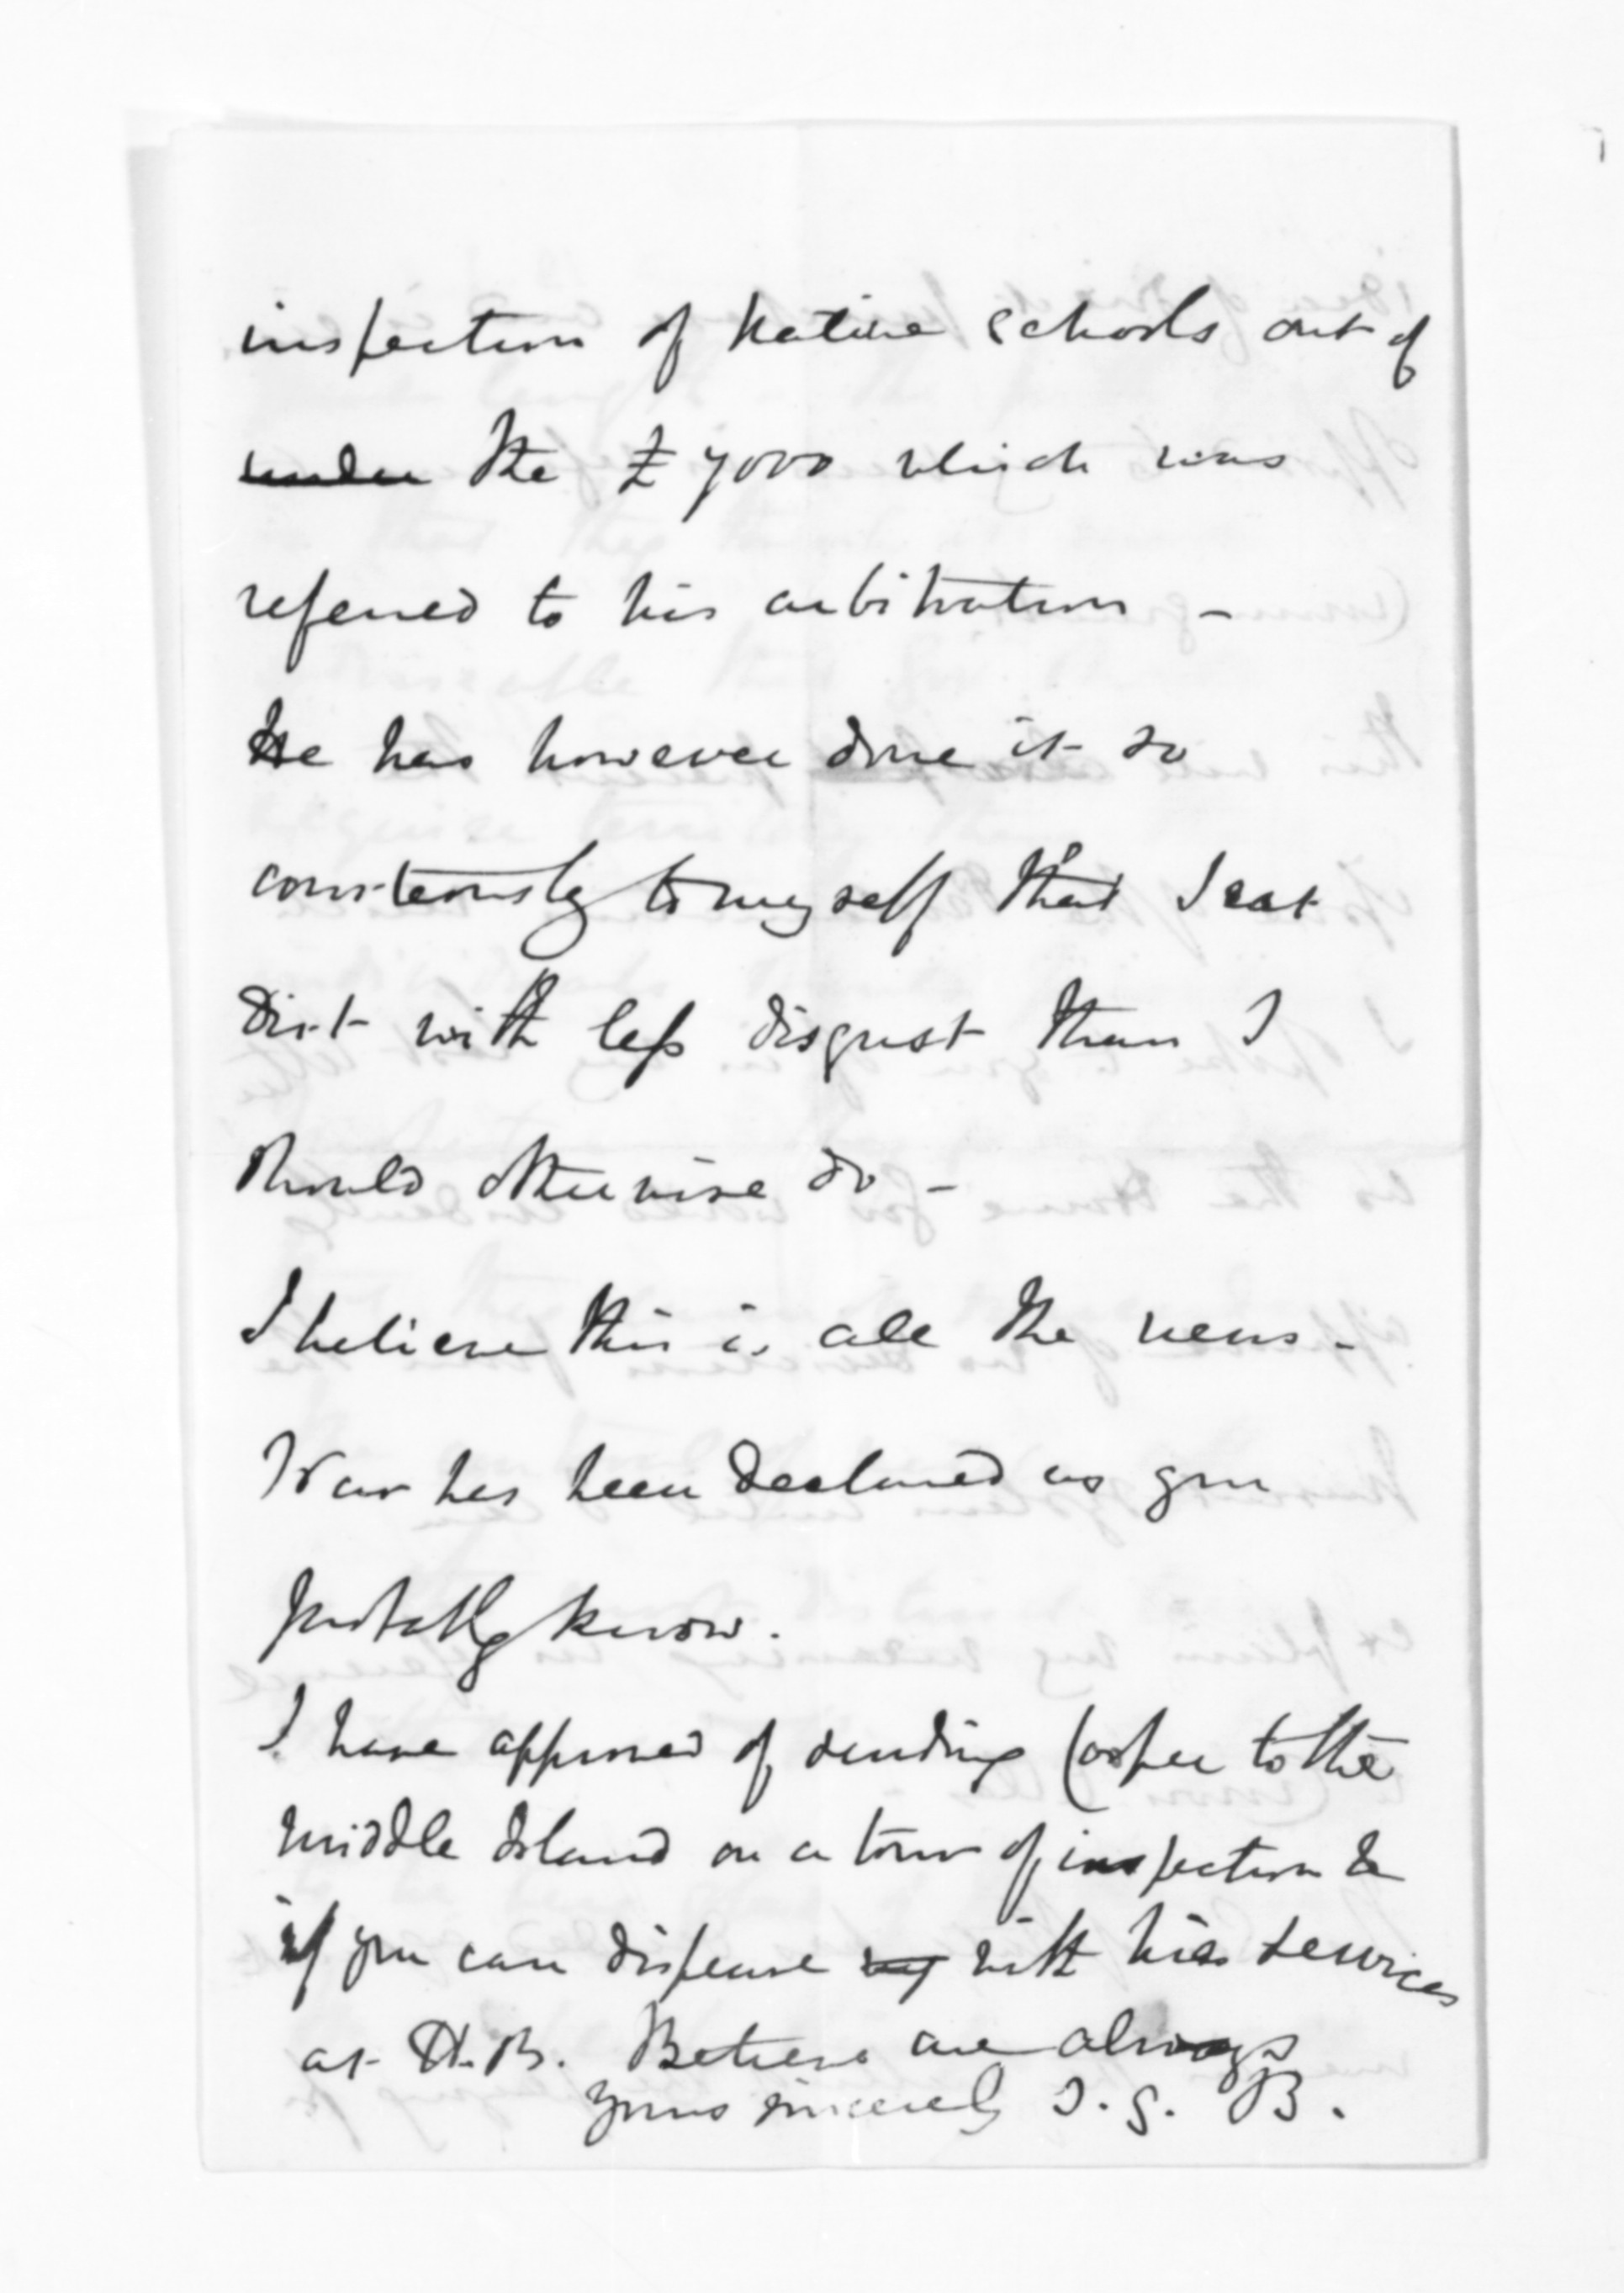 inspection of Native Schools out of
under the £7000 which was
referred to his arbitration -
He has however done it so
courteously to myself that I eat
dirt with less disgust than I
should otherwise do -
I believe this is all the news -
War has been declared as you
probably know.
I have approved of sending Cooper to the
Middle Island on a tour of inspection &
if you can dispense with his services
at H.B. Believe me always
yours sincerely T. G. B.